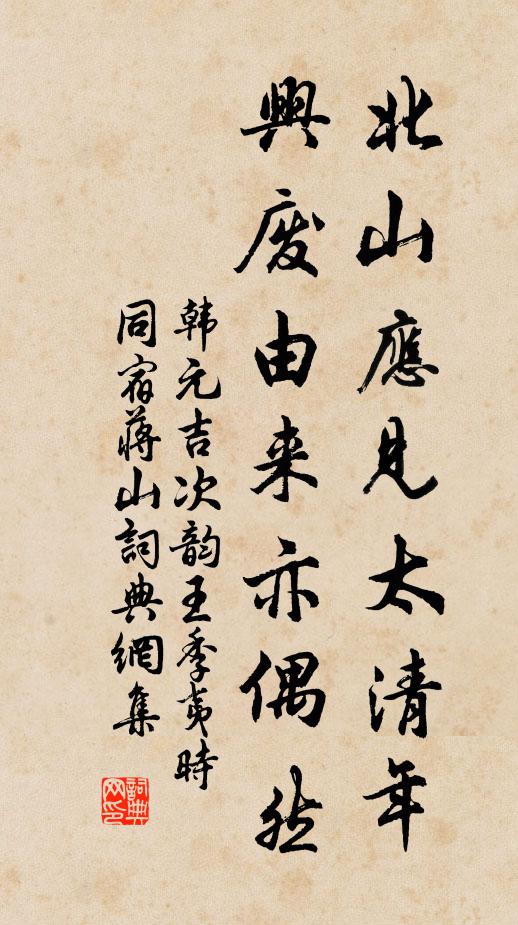 北山應見太清年
興废由来亦偶然
韩元吉次韵王季夷時
同宿蔣山詞典網集
詞典网印